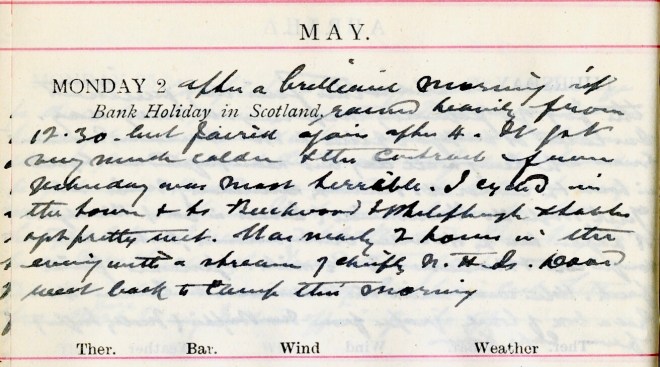 MAY.
MONDAY 2 after a brilliant morning it
Bank Holiday in Scotland, rained heavily from
12.30. but faired again after 4. It got
very much colder & the contrast from
yesterday was most terrible. I cycled in
the town & to Beechwood & Philiphaugh & stables
got pretty wet. Was nearly 2 hours in the
evening with a stream of chiefly N. H. Is.
went back to Camp this morning
Ther. Bar. Wind Weather